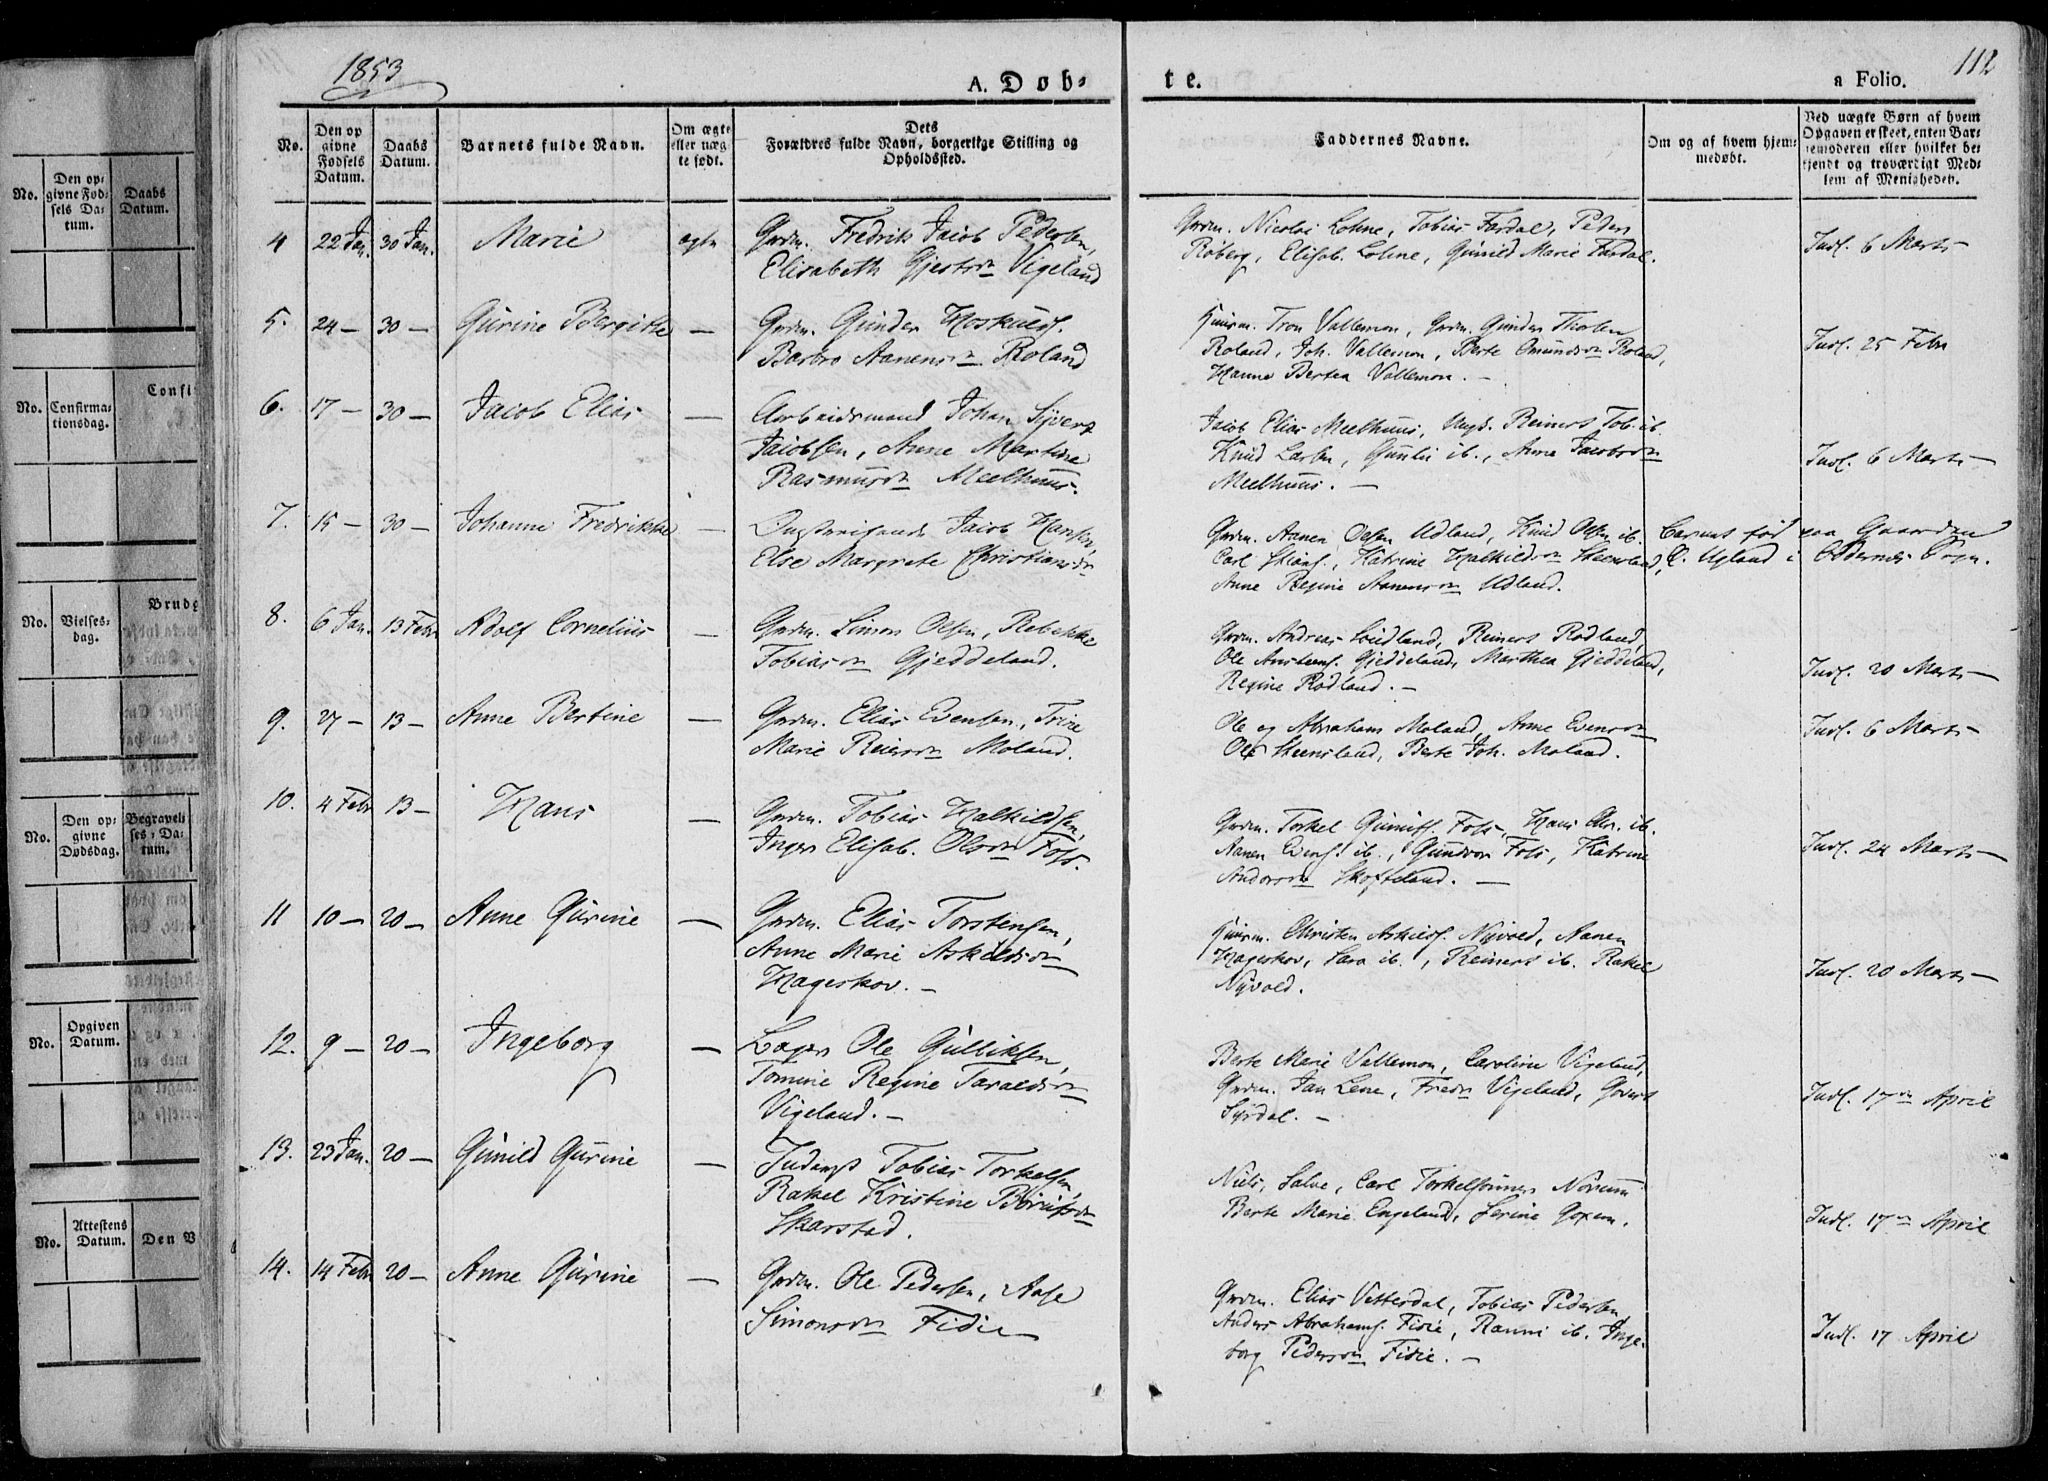 1853
112
A. Døb-
te.
a Folio.
No.
Den op
givne
Fødsels
Datum.
Daabs
Datum.
Barnets fulde Navn.
Om ægte
eller uæg
te født.
Dets
Forældres fulde Navn, borgerlige Stilling og
Opholdssted.
Faddernes Navne.
Om og af hvem hjem-
medøbt.
Ved uægte Børn af hvem
Opgaven er skeet, enten Bar-
nemoderen eller hvilket be-
kjendt og troværdigt Med-
lem af Menigheden.
4 22 Jan. 30 Jan. Marie ægte
Grdm. Fredrik Jacob Pedersen,
Elisabeth Gjestsdr Vigeland
Grdm. Nicolai Lohne, Tobias Fardal, Peder
Røberg, Elisab. Lohne, Gunild Marie Fardal.
Indf. 6 Marts
5. 24 — 30 — Gurine Bergitte —
Grdm. Gunder Hoskulds.
Barbro Aanensdr Roland
Huusm. Tron Vallemon, Grdm. Gunder
Roland, Joh. Vallemon, Berte Omundsdr Roland,
Hanne Bertea Vallemon. —
Indf. 25 Febr
6. 17 — 30 — Jacob Elias —
Arbeidsmand Johan Syvert
Jacobsen, Anne Martine
Rasmusdr Meelhuus.
Jacob Elias Meelhuus, Ungk. Reinert Tob. ib.
Knud Larsen, Gunli ib., Anne Jacobsdr
Meelhuus. —
Indf. 6 Marts
7. 15 — 30 — Johanne Fredrikke —
Jacob Hansen,
Else Margrete Christiansdr
Grdm. Aanen Olsen Udland, Knud Olsen ib.
Carl Katrine Halkildsdr Steensland,
Anne Regine Aanensdr Udland.
Barnet fød paa Gaarden
Ugland i Oddernes Sogn.
8. 6 Jan. 13 Febr Adolf Cornelius —
Grdm. Simon Olsen, Rebekke
Tobiasdr Gjeddeland.
Grdm. Andreas Reinert Rødland,
Ole Gjeddeland, Marthea Gjeddeland,
Regine Rødland. —
Indf. 20 Marts
9. 27 — 13 — Anne Bertine —
Grdm. Elias Evensen, Trine
Marie Reiersdr Moland.
Ole og Abraham Moland, Anne Evensdr
Ole Steensland, Berte Joh. Moland.
Indf. 6 Marts
10. 4 Febr 13 — Hans —
Grdm. Tobias Halkildsen,
Inger Elisab. Olsdr Foss.
Grdm. Torkel Foss, Hans Chr. ib.
Aanen Evens. ib., Gundvor Foss, Katrine
Andersdr Skofteland. —
Indf. 24 Marts
11 10 — 20 — Anne Gurine —
Grdm. Elias Torstensen,
Anne Marie Askildsdr
Hageskov. —
Huusm. Christen Askilds. Nyvold, Aanen
Hageskov, Sara ib., Reinert ib. Rakel
Nyvold.
Indf. 20 Marts
12. 9 — 20 — Ingeborg —
Ole Gulliksen,
Tomine Regine Taraldsdr
Vigeland. —
Berte Marie Vallemon, Caroline Vigeland,
Grdm. Jan Lene, Fredr Vigeland, Govert
Syrdal. —
Indf. 17de April
13. 23 Jan. 20 — Gunild Gurine —
Inderst Tobias Torkelsen,
Rakel Kristine Børufsdr
Skarstad.
Niels, Salve, Carl Torkelsønner Nørum
Berte Marie Engeland, Serine
Indf. 17de April
14. 14 Febr 20 — Anne Gurine —
Grdm. Ole Pedersen, Aase
Simonsdr Fidie
Grdm. Elias Vetterdal, Tobias Pedersen,
Anders Abrahams. Fidie, Ranni ib. Inge-
borg Pedersdr Fidie. —
Indf. 17 April
No.
Den op-
givne Fød-
sels Da-
tum.
Daabs
Datum.
No.
Confirma-
tionsdag.
Confi
No.
Vielses-
dag.
Brudg
No.
Den op-
givne
Dødsdag.
Begravel-
ses-Da-
tum.
No.
Opgiven
Datum.
No.
Attestens
Datum.
Den V